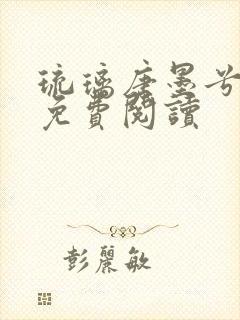 琉璃唐墨兮
免費閱讀
彭麗敏